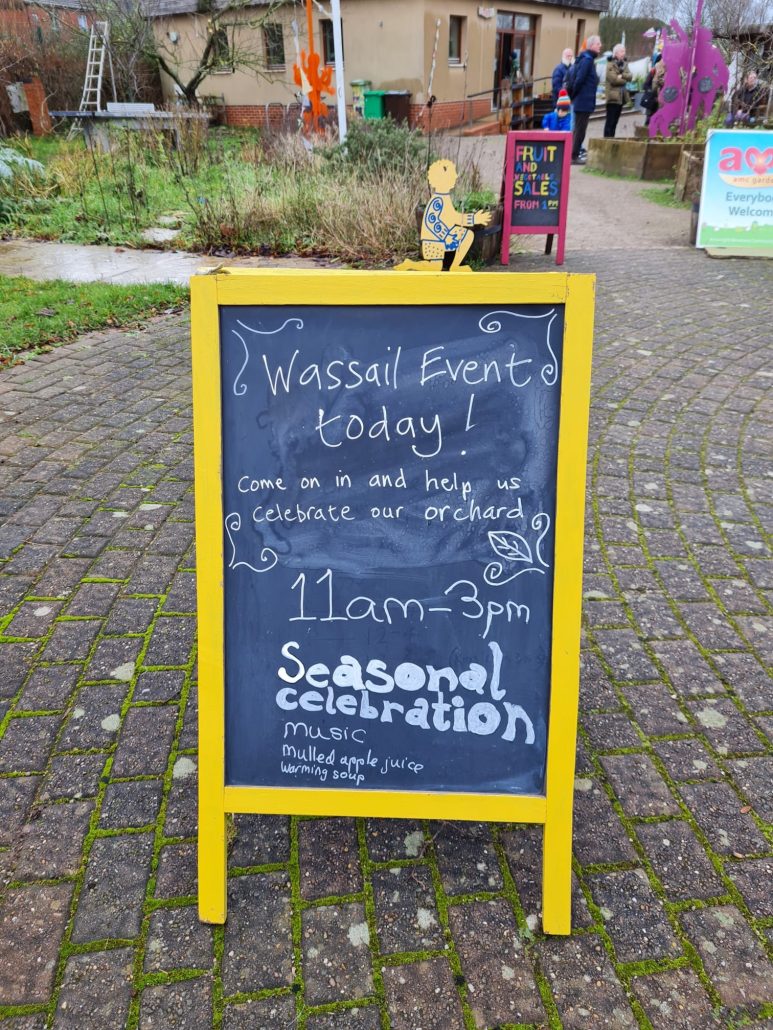 FRUIT
AND
VEGETABLE
SALES
FROM 1PM
amc
amc garde
Everybo
Welcom
Wassail Event
today!
Come on in and help us
celebrate our orchard
11am-3pm
Seasonal
celebration
music
mulled apple juice
warming soup